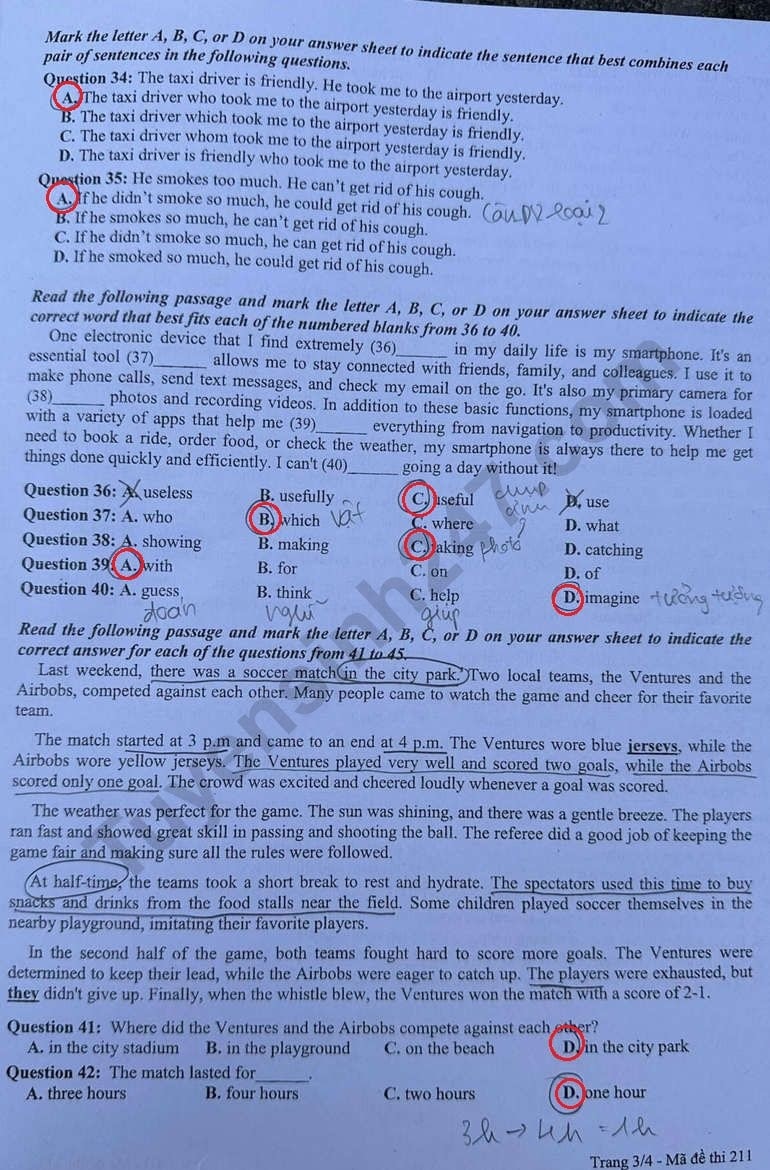 Mark the letter A, B, C, or D on your answer sheet to indicate the sentence that best combines each
pair of sentences in the following questions.
Question 34: The taxi driver is friendly. He took me to the airport yesterday.
A. The taxi driver who took me to the airport yesterday is friendly.
B. The taxi driver which took me to the airport yesterday is friendly.
C. The taxi driver whom took me to the airport yesterday is friendly.
D. The taxi driver is friendly who took me to the airport yesterday.
Question 35: He smokes too much. He can't get rid of his cough.
A. If he didn't smoke so much, he could get rid of his cough. Câu ĐK loại 2
B. If he smokes so much, he can't get rid of his cough.
C. If he didn't smoke so much, he can get rid of his cough.
D. If he smoked so much, he could get rid of his cough.
Read the following passage and mark the letter A, B, C, or D on your answer sheet to indicate the
correct word that best fits each of the numbered blanks from 36 to 40.
One electronic device that I find extremely (36)______ in my daily life is my smartphone. It's an
essential tool (37)______ allows me to stay connected with friends, family, and colleagues. I use it to
make phone calls, send text messages, and check my email on the go. It's also my primary camera for
(38)______ photos and recording videos. In addition to these basic functions, my smartphone is loaded
with a variety of apps that help me (39)______ everything from navigation to productivity. Whether I
need to book a ride, order food, or check the weather, my smartphone is always there to help me get
things done quickly and efficiently. I can't (40)______ going a day without it!
Question 36: A. useless B. usefully C. useful D. use
chụp ảnh
Question 37: A. who B. which vật C. where D. what
Question 38: A. showing B. making C. taking photo D. catching
Question 39: A. with B. for C. on D. of
Question 40: A. guess B. think C. help D. imagine tưởng tượng
đoán nghĩ giúp
Read the following passage and mark the letter A, B, C, or D on your answer sheet to indicate the
correct answer for each of the questions from 41 to 45.
Last weekend, there was a soccer match in the city park. Two local teams, the Ventures and the
Airbobs, competed against each other. Many people came to watch the game and cheer for their favorite
team.
The match started at 3 p.m and came to an end at 4 p.m. The Ventures wore blue jerseys, while the
Airbobs wore yellow jerseys. The Ventures played very well and scored two goals, while the Airbobs
scored only one goal. The crowd was excited and cheered loudly whenever a goal was scored.
The weather was perfect for the game. The sun was shining, and there was a gentle breeze. The players
ran fast and showed great skill in passing and shooting the ball. The referee did a good job of keeping the
game fair and making sure all the rules were followed.
At half-time, the teams took a short break to rest and hydrate. The spectators used this time to buy
snacks and drinks from the food stalls near the field. Some children played soccer themselves in the
nearby playground, imitating their favorite players.
In the second half of the game, both teams fought hard to score more goals. The Ventures were
determined to keep their lead, while the Airbobs were eager to catch up. The players were exhausted, but
they didn't give up. Finally, when the whistle blew, the Ventures won the match with a score of 2-1.
Question 41: Where did the Ventures and the Airbobs compete against each other?
A. in the city stadium B. in the playground C. on the beach D. in the city park
Question 42: The match lasted for______.
A. three hours B. four hours C. two hours D. one hour
3h → 4h = 1h
Trang 3/4 - Mã đề thi 211
Tuyensinh247.com